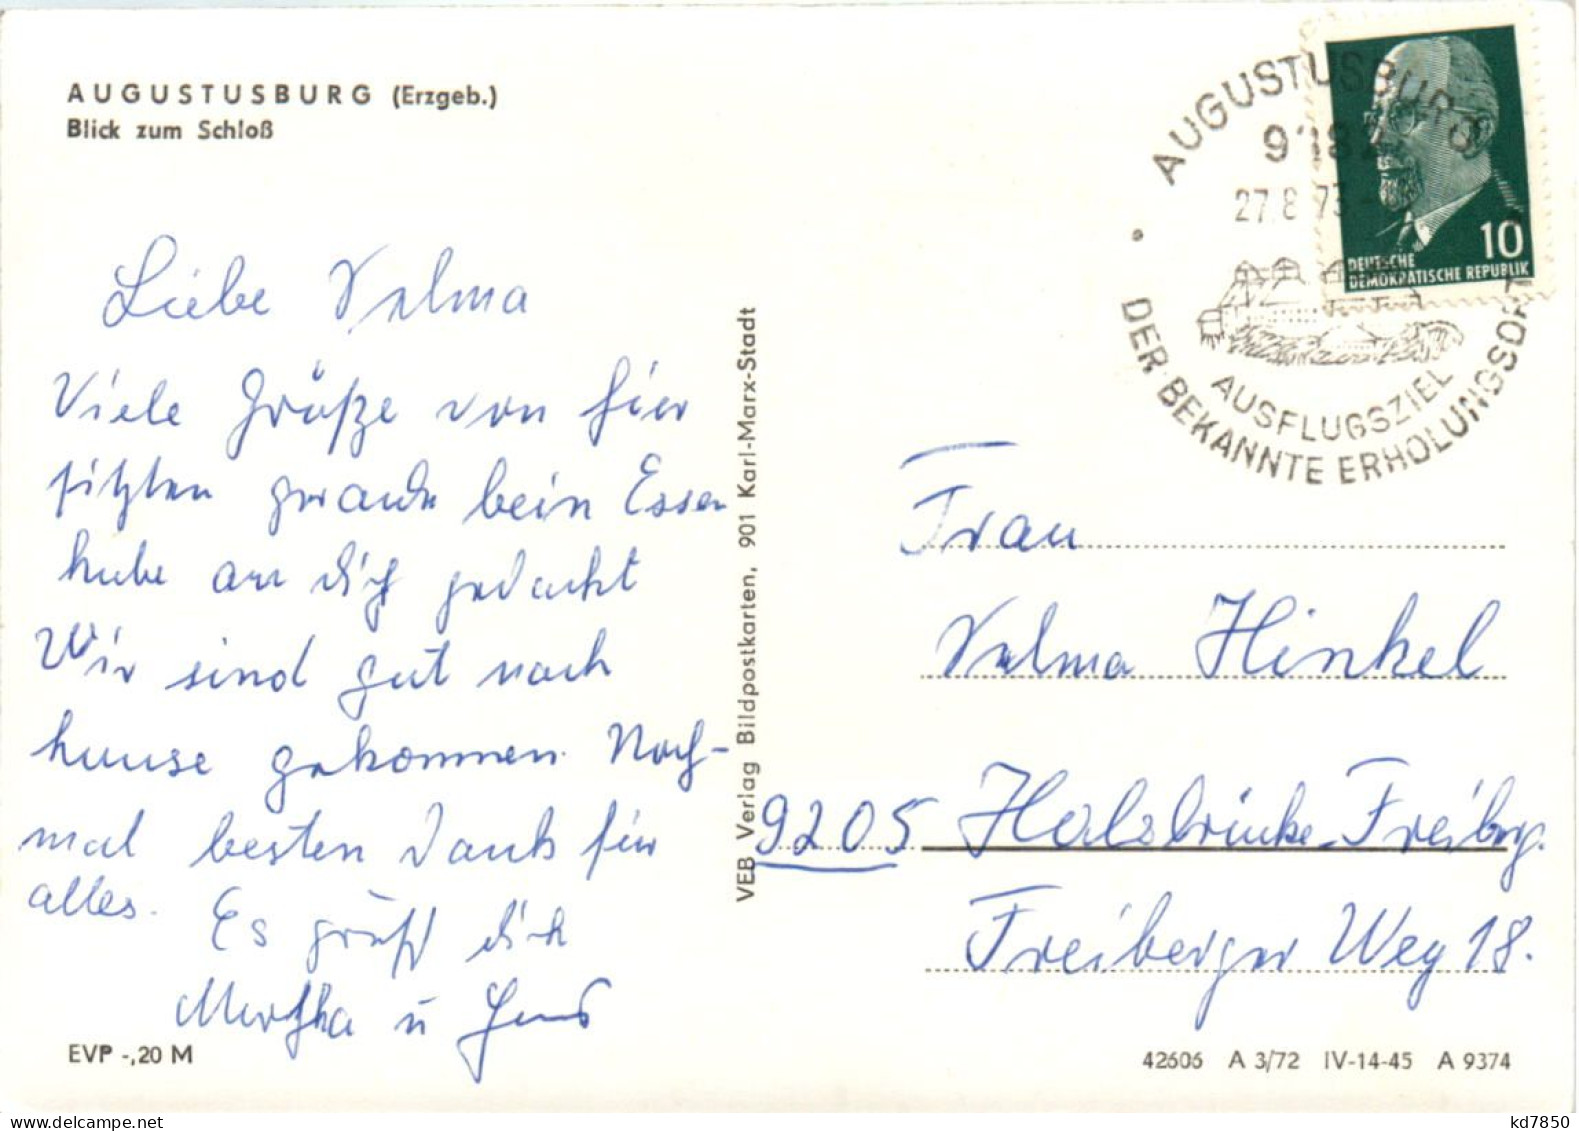 AUGUSTUSBURG (Erzgeb.)
Blick zum Schloß
Liebe Velma
Viele Grüße von hier
sitzten gerade bein Essen
habe an dich gedacht
Wir sind gut nach
hause gekommen. Noch-
mal besten Dank für
alles. Es grüßt dich
Martha u
EVP -,20 M
VEB Verlag Bildpostkarten, 901 Karl-Marx-Stadt
AUGUSTUSBURG
27.8.73
AUSFLUGSZIEL
DER BEKANNTE ERHOLUNGSORT
10
DEUTSCHE
DEMOKRATISCHE REPUBLIK
Frau
Velma Hinkel
9205 Halsbrücke-Freiberg.
Freiberger Weg 18.
42606 A 3/72 IV-14-45 A 9374
kd7850
www.delcampe.net